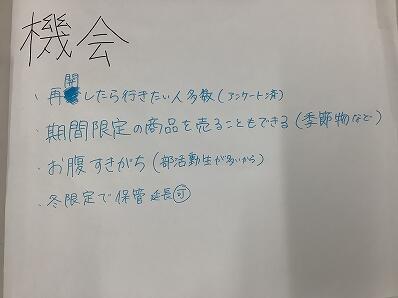 機会
・再開したら行きたい人多数(アンケート済)
・期間限定の商品を売ることもできる(季節物など)
・お腹すきがち(部活動生が多いから)
・冬限定で保管延長可